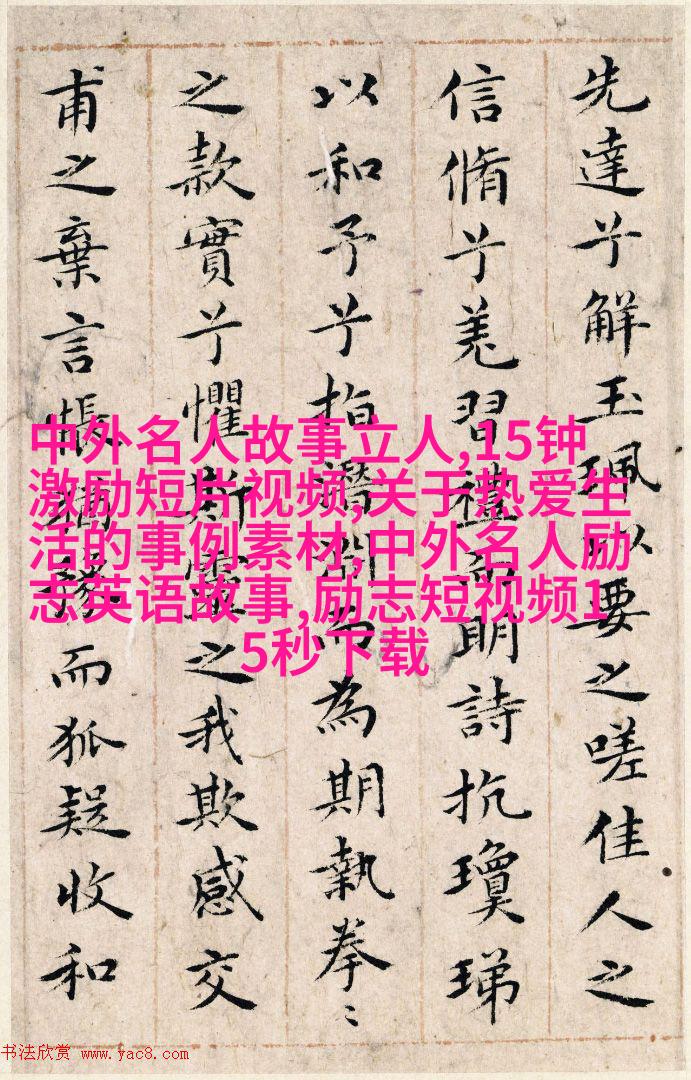 先達兮解玉珮以要之嗟佳人之
信脩兮羌習禮而明詩抗瓊珶
以和予兮指潛淵而為期執拳〻
之款實兮懼斯靈之我欺感交
甫之棄言悵猶豫而狐疑收和
中外名人故事立人,15钟
激励短片视频,关于热爱生
活的事例素材,中外名人励
志英语故事,励志短视频1
5秒下载
书法欣赏 www.yac8.com